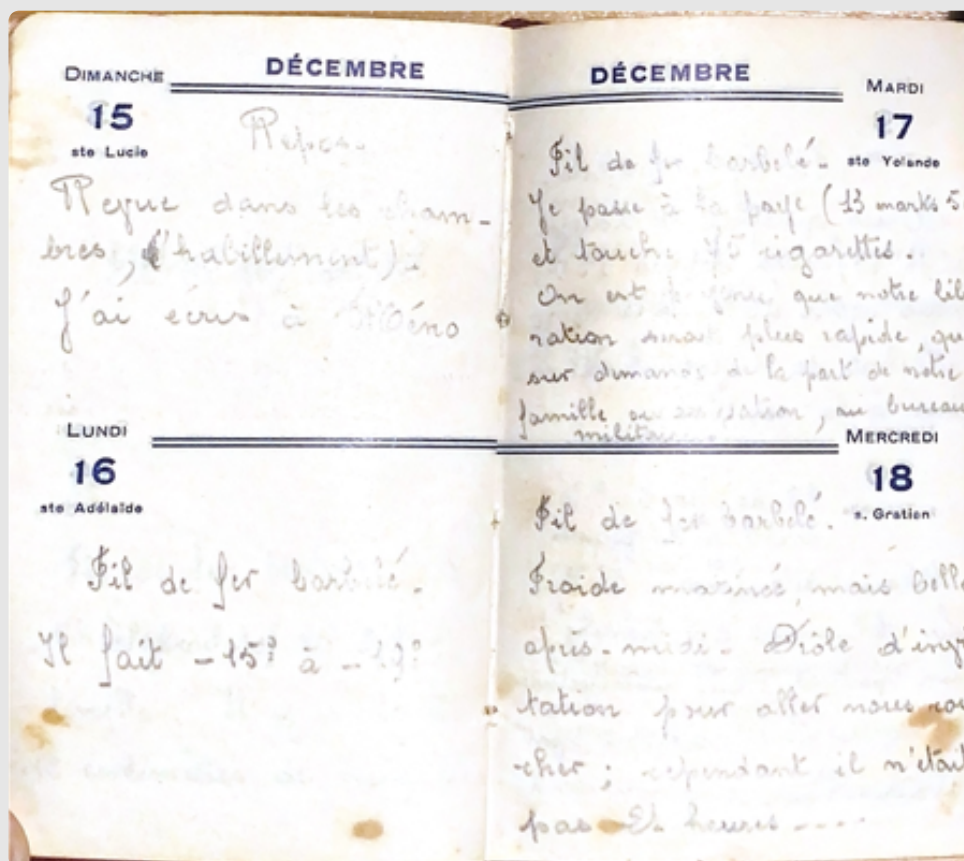 DIMANCHE
DÉCEMBRE
15
ste Lucie
Repos.
Revue dans les cham-
bres, (l'habillement).
J'ai écris à
LUNDI
16
ste Adélaïde
Fil de fer barbelé.
Il fait -15° à -19°
DÉCEMBRE
MARDI
17
ste Yolande
Fil de fer barbelé.
Je passe à la paye (13 marks 5
et touche 75 cigarettes.
On est que notre libé
ration serait plus rapide, que
sur demande de la part de nôtre
famille, ou, au bureau
militaire.
MERCREDI
18
s. Gratien
Fil de fer barbelé.
Froide matinée, mais belle
après-midi. Drôle d'invi
tation pour aller nous cou
cher ; cependant il n'était
pas heures ....